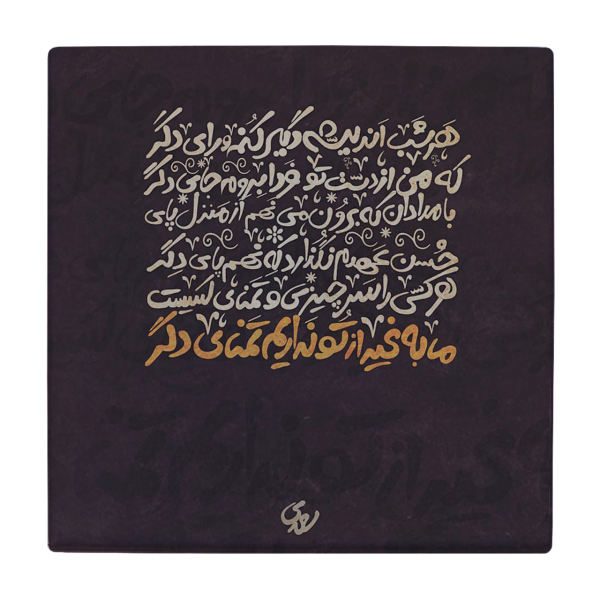 هر شب اندیشه دگر کنم و رای دگر
که من از دست تو فردا بروم جای دگر
بامدادان که برون می نهم از منزل پای
حسن عهدم نگذارد که نهم پای دگر
هر کسی را سر چیزی و تمنای کسیست
ما به غیر از تو نداریم تمنای دگر
سعدی